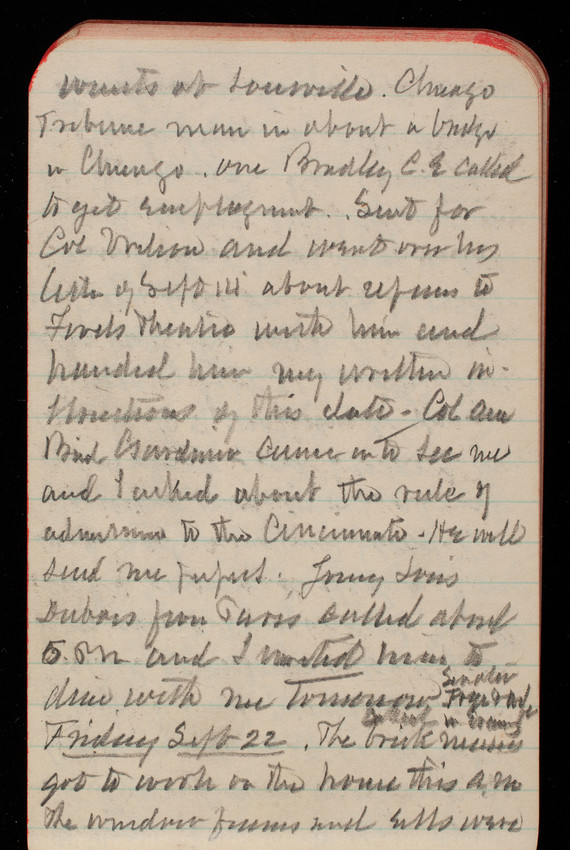 wants at Louisville. Chicago
Tribune man in about a bridge
in Chicago. One Bradley C.E called
to get employment. Sent for
Col Wilson and went over his
letter of Sept 14 about repairs to
Fords Theatre with him and
handed him my written in-
structions of this date - Col
Bird Gardiner came in to see me
and I asked about the rule of
admission to the Cincinnati - He will
send me
Dubois from Paris called about
5. PM and I invited him to
dine with me tomorrow
Senator
Frye & wife
in evening
Friday Sept 22. The brick masons
got to work on the house this a.m
The window frames and sills were